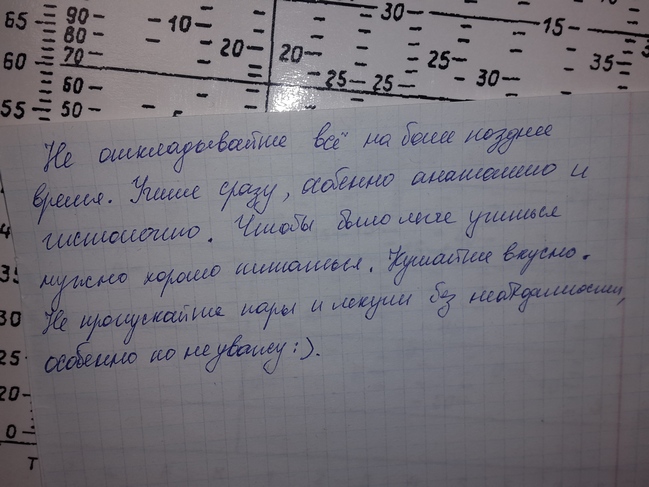 65 90 10 30 15
80 20 20 35
60 70 25 25 25 30
60
55 50
Не откладывайте всё на более позднее
время. Учите сразу, особенно анатомию и
гистологию. Чтобы было легче учиться
нужно хорошо питаться. Кушайте вкусно.
Не пропускайте пары и лекции без необходимости,
особенно по неуважу :).
35
30
25
20
0
Т